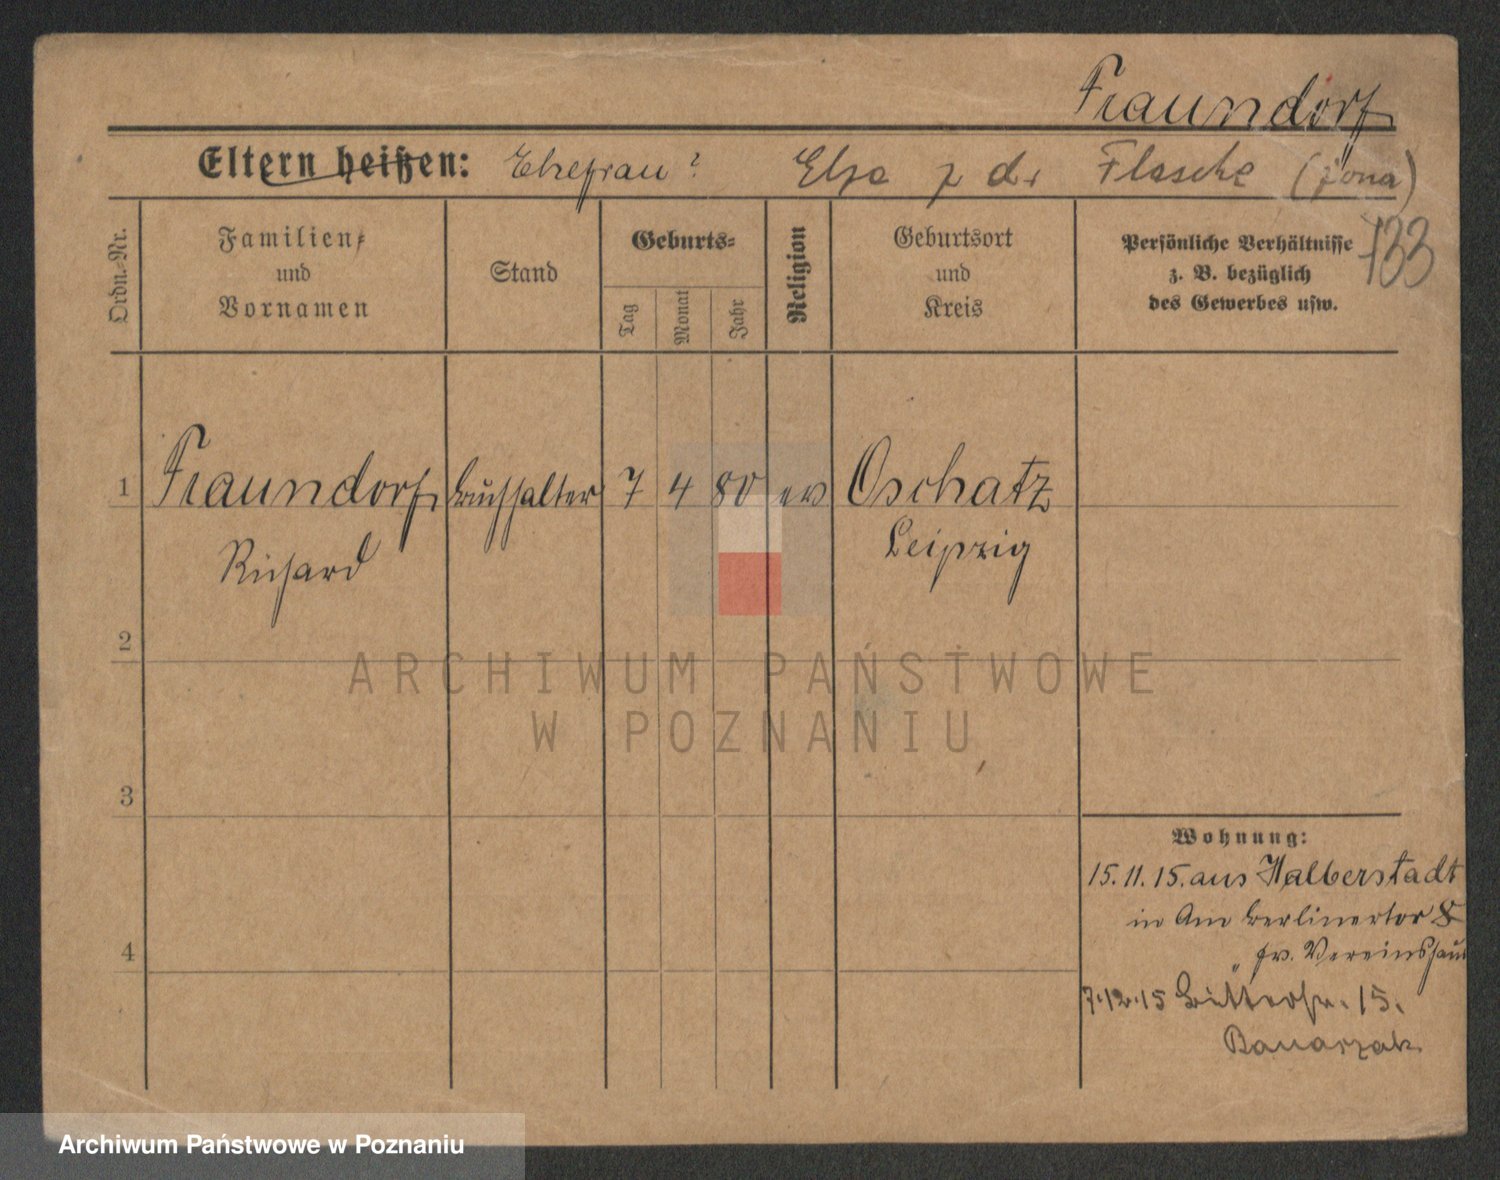 Fraundorf
Eltern heißen: Ehefrau? Elsa z d. Flasche (żona)
733
Ordn.-Nr.
Familien-
und
Vornamen
Stand
Geburts-
Tag
Monat
Jahr
Religion
Geburtsort
und
Kreis
Persönliche Verhältnisse
z. B. bezüglich
des Gewerbes usw.
1 Fraundorf, Buchhalter 7 4 80 ev Oschatz
Richard Leipzig
2
3
4
Wohnung:
15.11.15. aus Halberstadt
in Am Berlinertor 8
" Ev. Vereinshaus
7.12.15 Ritterstr. 15.
Banaszak
ARCHIWUM PAŃSTWOWE
W POZNANIU
Archiwum Państwowe w Poznaniu